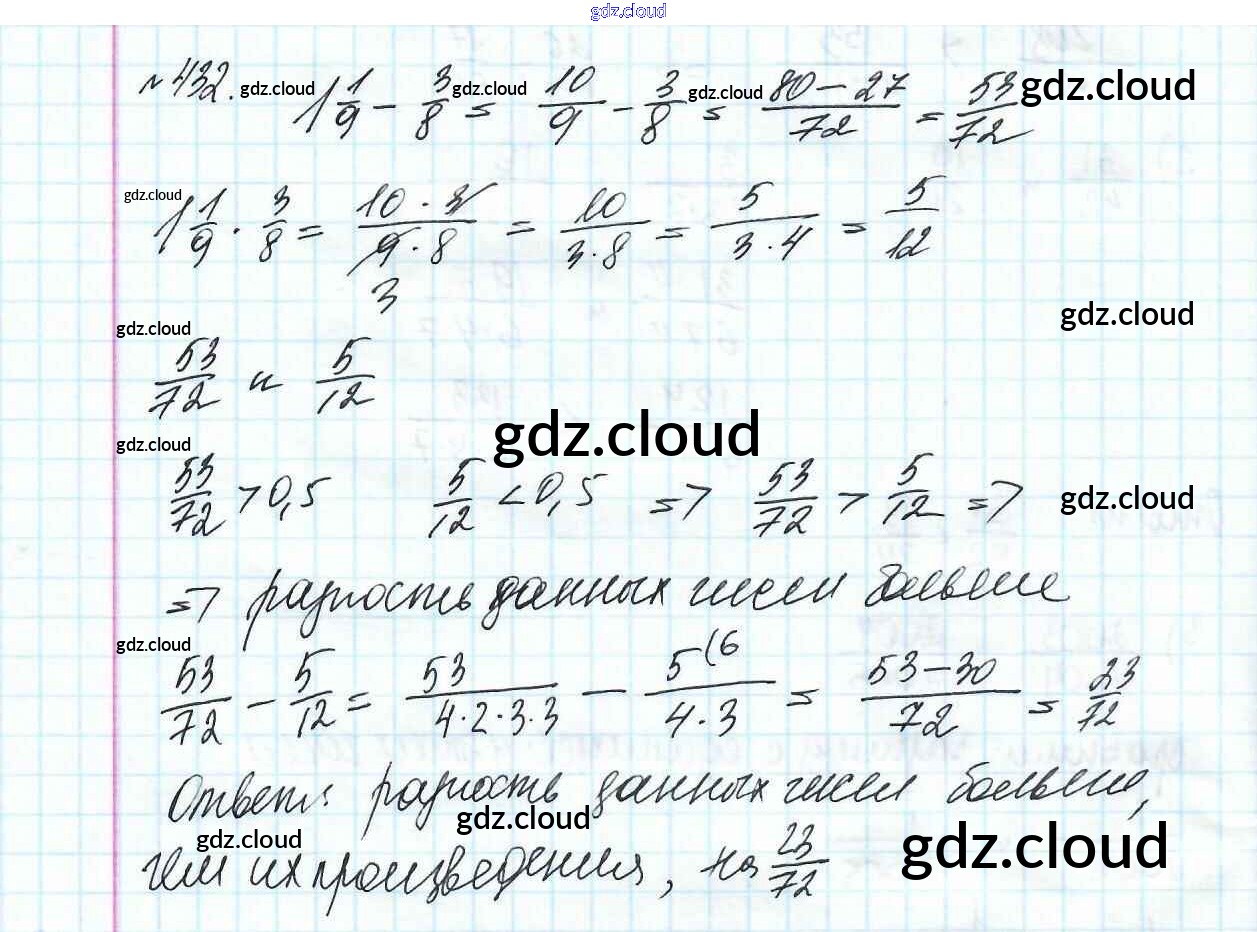 gdz.cloud
№ 432. gdz.cloud 1 1/9 - 3/8 gdz.cloud = 10/9 - 3/8 gdz.cloud = (80-27)/72 = 53/72 gdz.cloud
gdz.cloud 1 1/9 · 3/8 = (10·3)/(9·8) 3 = 10/(3·8) = 5/(3·4) = 5/12
gdz.cloud gdz.cloud
53/72 и 5/12
gdz.cloud gdz.cloud
53/72 > 0,5 5/12 < 0,5 => 53/72 > 5/12 => gdz.cloud
=> разность данных чисел больше
gdz.cloud
53/72 - 5/12 = 53/(4·2·3·3) - 5(6/(4·3) = (53-30)/72 = 23/72
Ответ: разность данных чисел больше,
gdz.cloud gdz.cloud gdz.cloud
чем их произведения, на 23/72